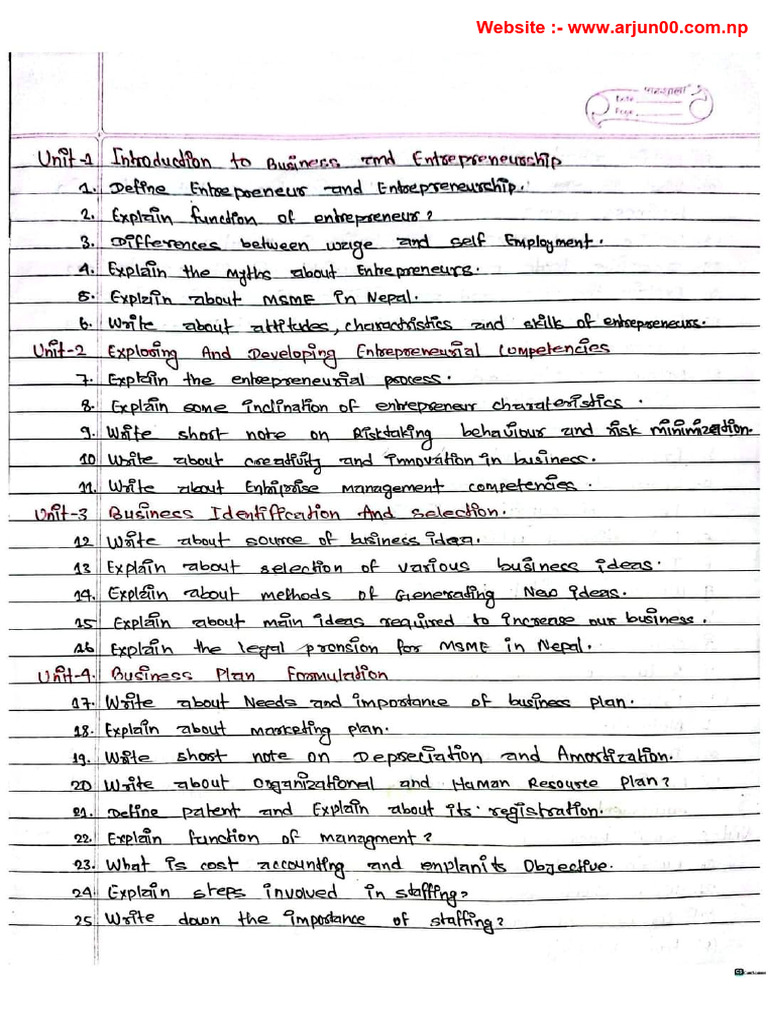 Website :- www.arjun00.com.np
Date
Page
Unit-1 Introduction to Business and Entrepreneurship
1. Define Entrepreneur and Entrepreneurship.
2. Explain function of entrepreneur?
3. Differences between wage and self Employment.
4. Explain the myths about Entrepreneurs.
5. Explain about MSME in Nepal.
6. Write about attitudes, charactristics and skills of entrepreneurs.
Unit-2 Exploring And Developing Entrepreneurial Competencies
7. Explain the entrepreneurial process.
8. Explain some inclination of entrepreneur charateristics.
9. Write short note on Risktaking behaviour and risk minimization.
10 Write about creativity and innovation in business.
11. Write about Enterprise management competencies.
Unit-3 Business Identification And Selection.
12 Write about source of business idea.
13 Explain about selection of various business ideas.
14. Explain about methods of Generating New ideas.
15 Explain about main ideas required to increase our business.
16 Explain the legal provsion for MSME in Nepal.
Unit-4. Business Plan Formulation
17. Write about Needs and importance of business plan.
18. Explain about marketing plan.
19. Write short note on Depreciation and Amortization.
20 Write about Organizational and Human Resource Plan?
21. Define patent and Explain about its registration.
22. Explain function of managment?
23. What is cost accounting and enplanits Objective.
24 Explain steps involved in staffing?
25 Write down the importance of staffing?
CS CamScanner